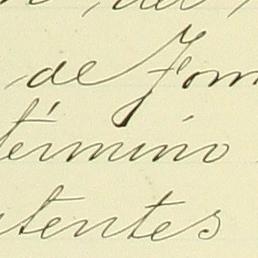 de Fom
término
tentes